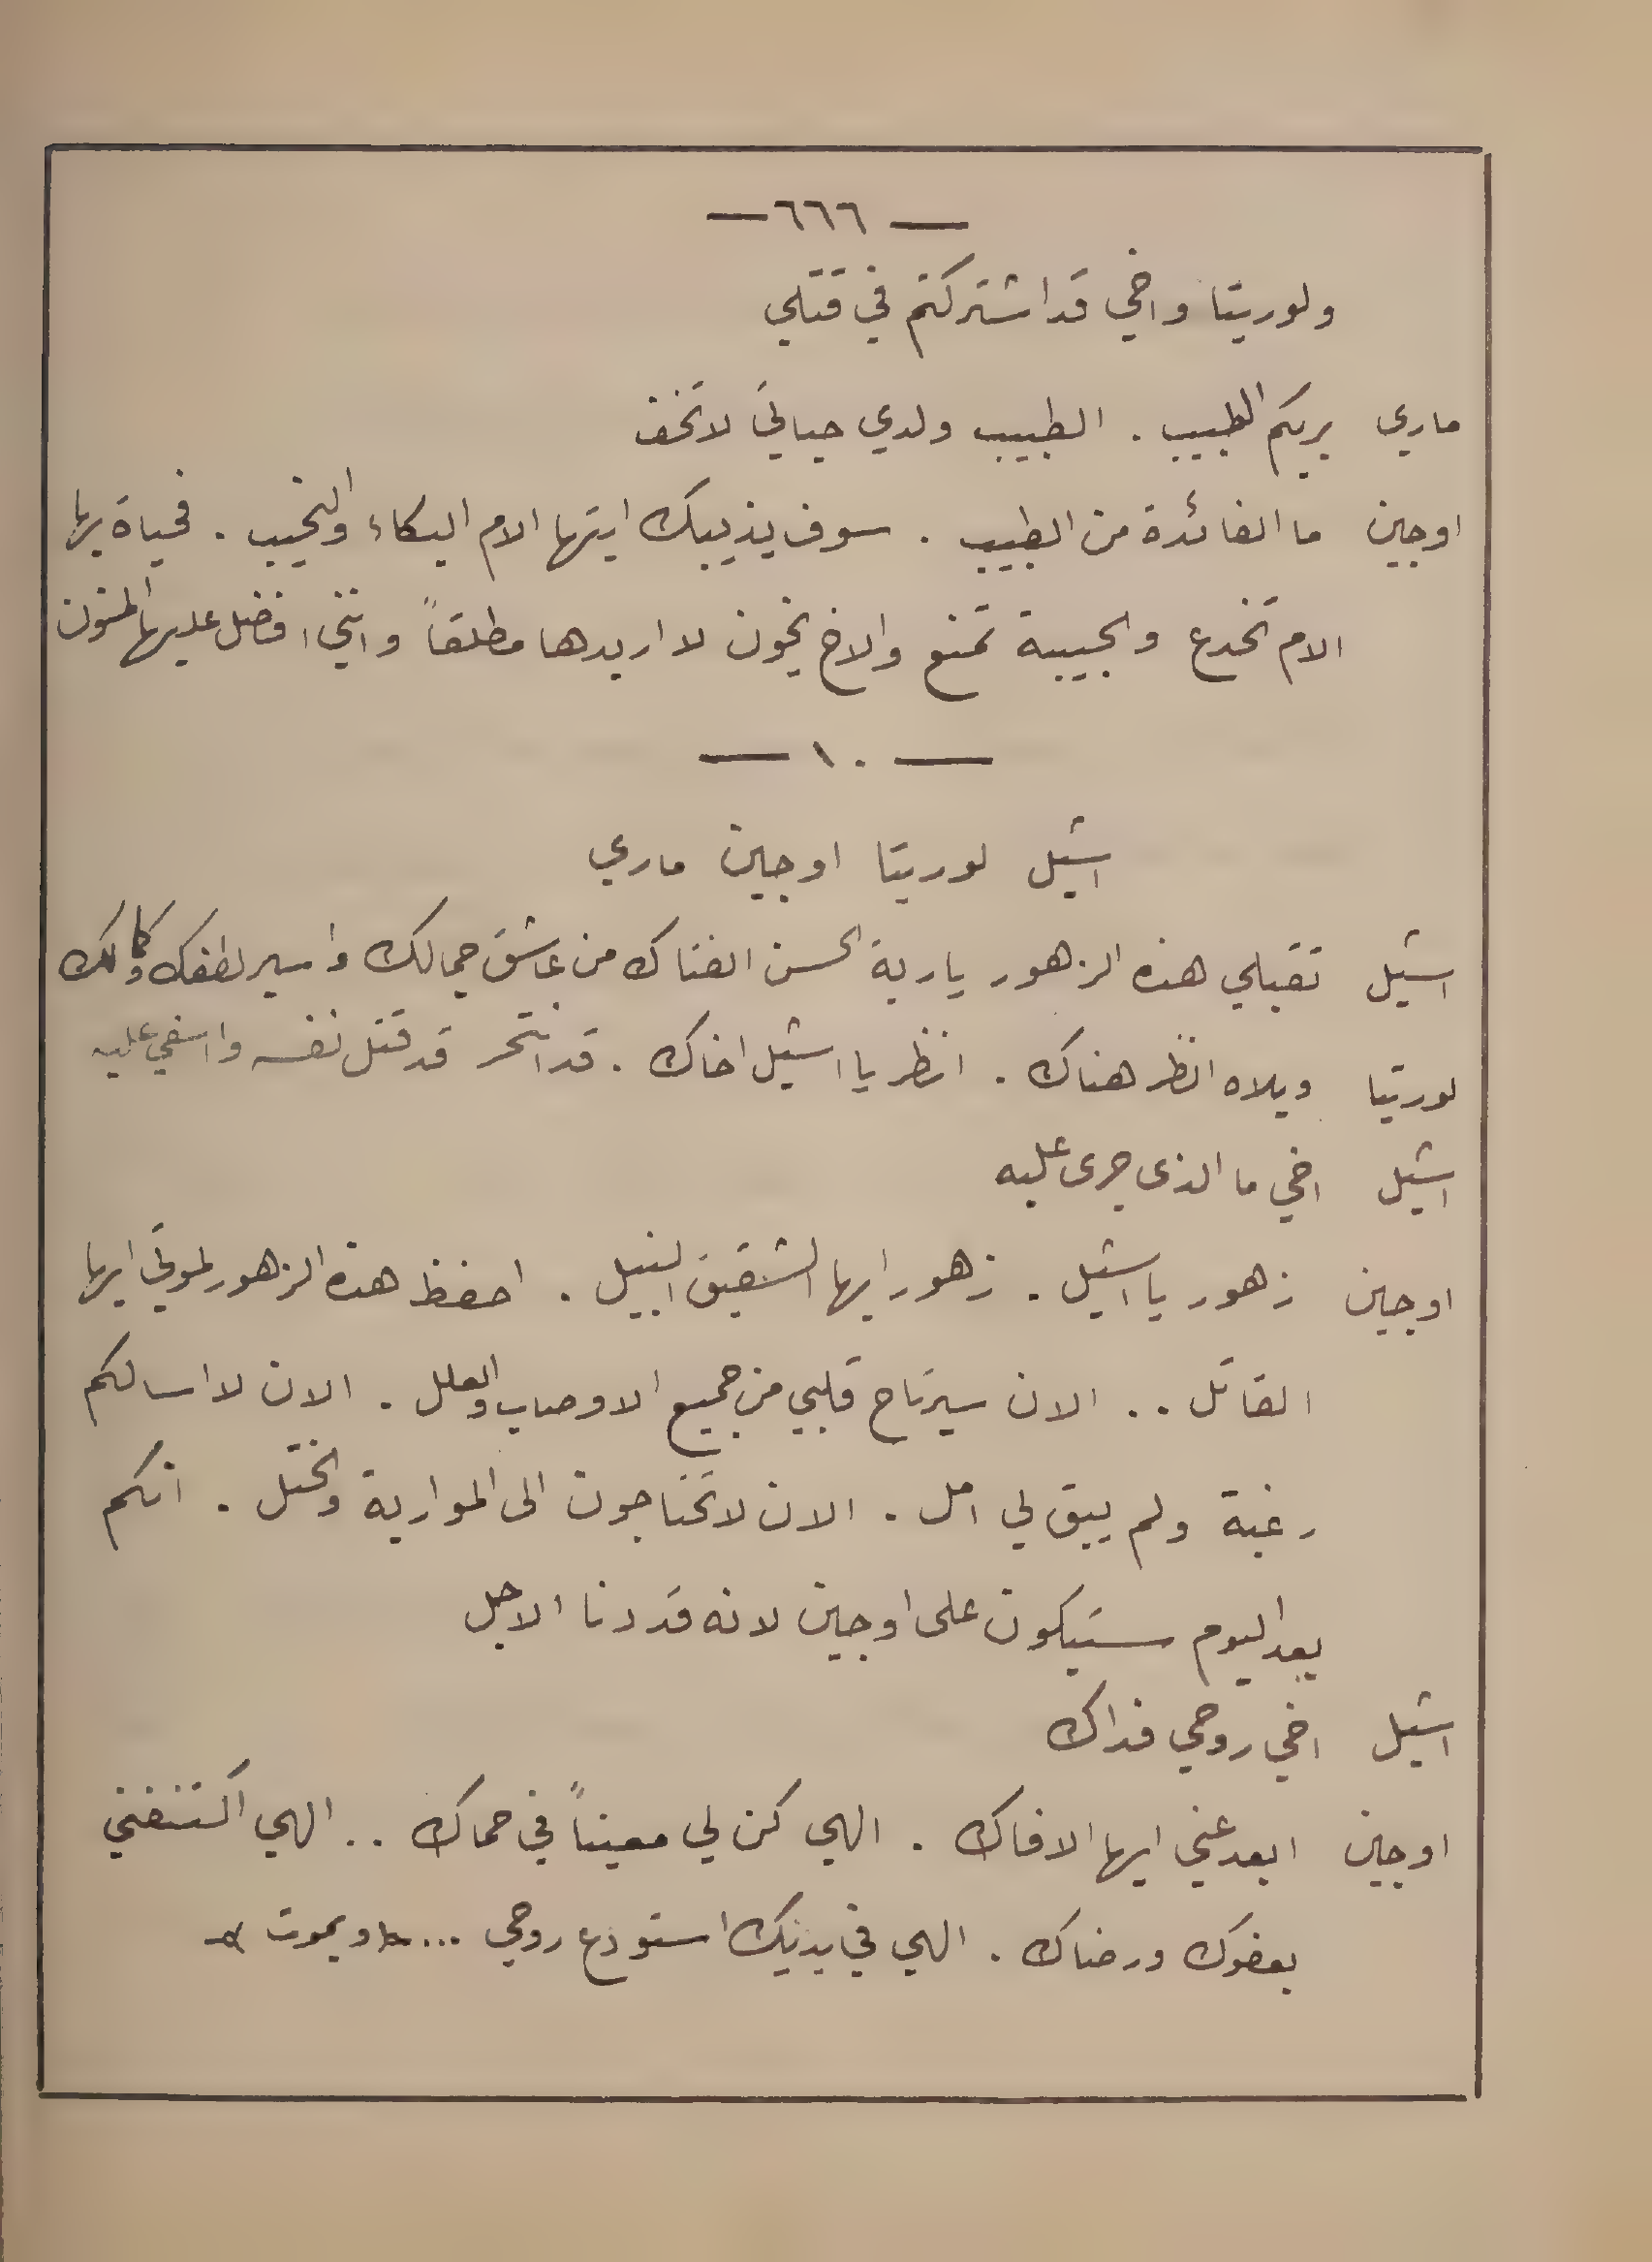 — ٦٦٦ —
ولوريتا واخي قد اشتركتم في قتلي
ماري بربكم الطبيب . الطبيب ولدي حياتي لا تخف
اوجين ما الفائدة من الطبيب . سوف يذيبك ايتها الام البكاء والنحيب . فحياة بها
الام تخدع والحبيبة تمنع والاخ يخون لا اريدها مطلقاً وانني افضل عليها المنون
— ١٠ —
اشيل لوريتا اوجين ماري
اشيل تقبلي هذه الزهور يا ربة الحسن الفتاك من عاشق جمالك واسير لطفك وكمالك
لوريتا ويلاه انظر هناك . انظر يا اشيل اخاك . قد انتحر قد قتل نفسه وا اسفي عليه
اشيل اخي ما الذى جرى عليه
اوجين زهور يا اشيل . زهور ايها الشقيق النبيل . احفظ هذه الزهور لموتي ايها
القاتل .. الان سيرتاح قلبي من جميع الاوصاب والعلل . الان لا اسالكم
رغبة ولم يبق لي امل . الان لا تحتاجون الى المواربة والختل . انكم
بعد اليوم ستبكون على اوجين لانه قد دنا الاجل
اشيل اخي روحي فداك
اوجين ابعد عني ايها الافاك . الهي كن لي معيناً في حماك .. الهي اكتنفني
بعفوك ورضاك . الهي في يديك استودع روحي ... ويموت